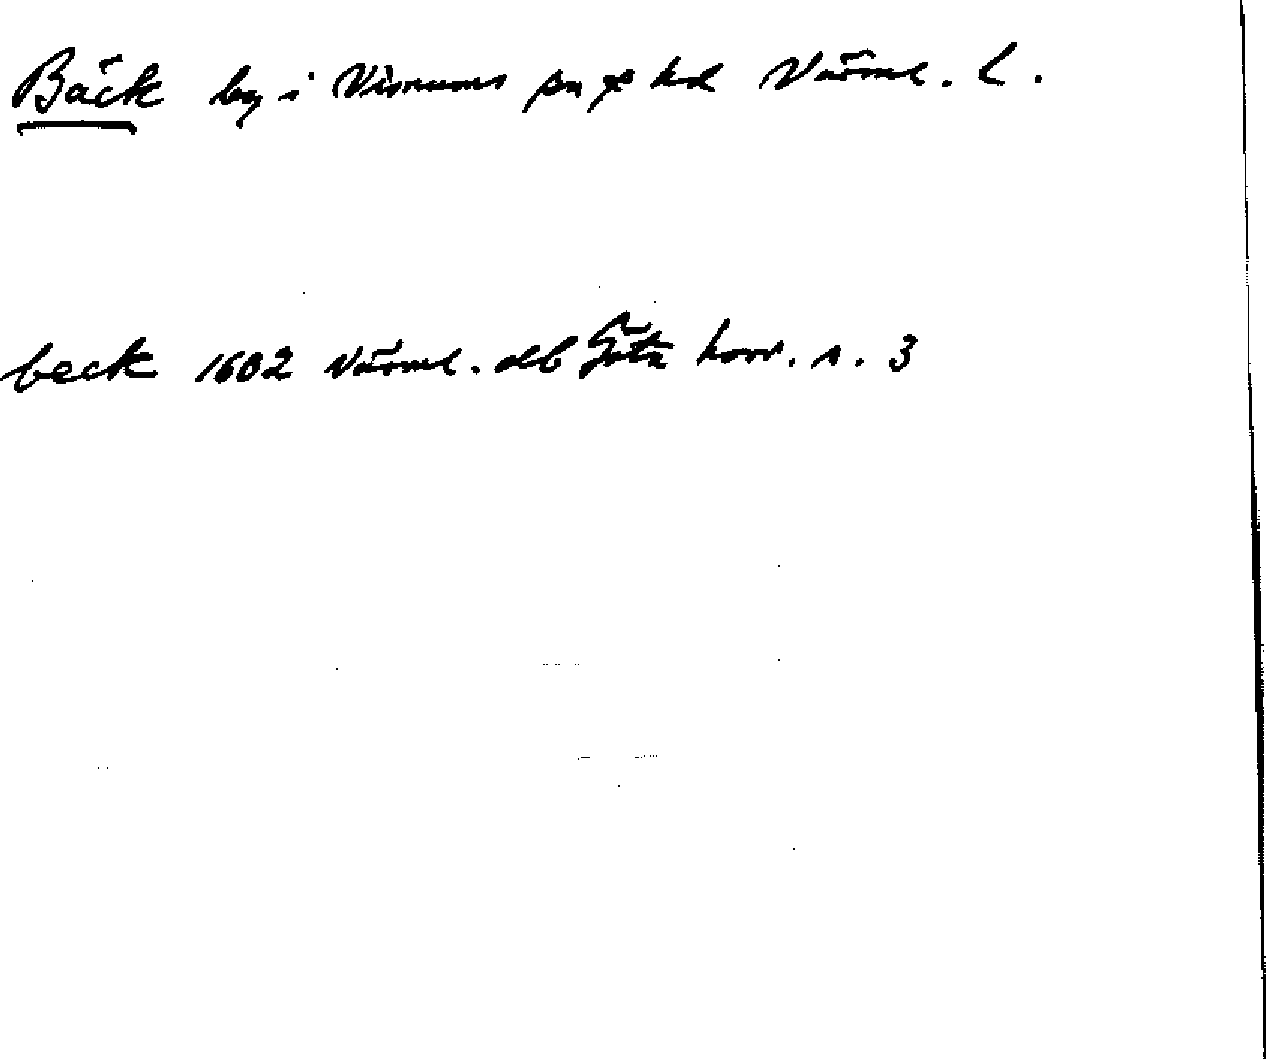 Bäck by i Visnums sn o hd Värml. l.
beck 1602 Värml. älb Göta korr. s. 3